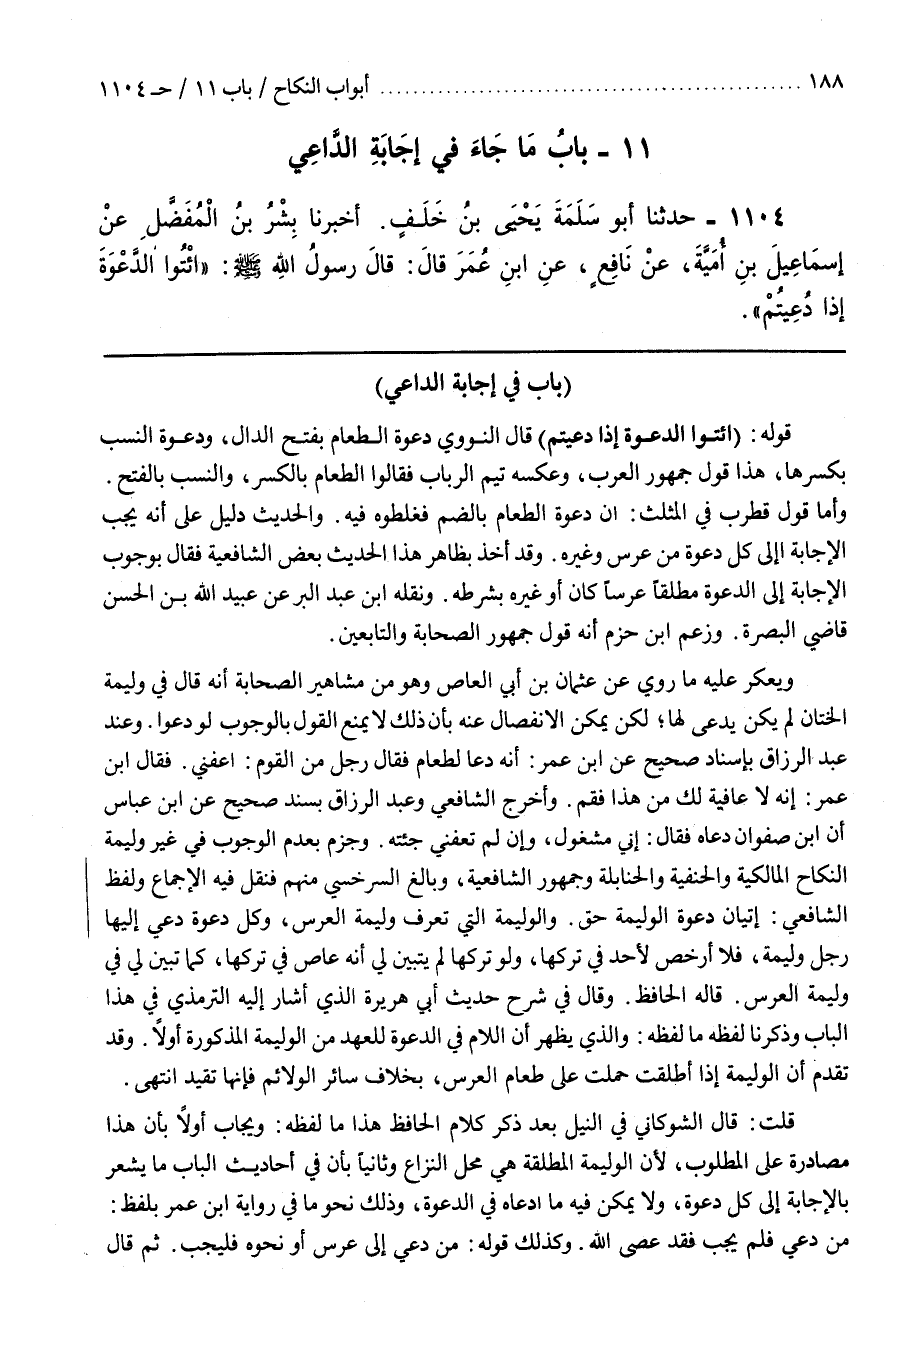 ١٨٨ ........................................ أبواب النكاح / باب ١١ / حـ ١١٠٤
١١ - بابُ مَا جَاءَ في إجَابَةِ الدَّاعِي
١١٠٤ - حدثنا أبو سَلَمَةَ يَحْيَى بنُ خَلَفٍ. أخبرنا بِشْرُ بنُ الْمُفَضَّلِ عنْ
إسمَاعِيلَ بنِ أُمَيَّةَ، عنْ نَافِعٍ، عنِ ابنِ عُمَرَ قالَ: قالَ رسولُ اللهِ ﷺ: «ائْتُوا الدَّعْوَةَ
إذا دُعِيتُمْ».
(باب في إجابة الداعي)
قوله: (ائتوا الدعوة إذا دعيتم) قال النووي دعوة الطعام بفتح الدال، ودعوة النسب
بكسرها، هذا قول جمهور العرب، وعكسه تيم الرباب فقالوا الطعام بالكسر، والنسب بالفتح.
وأما قول قطرب في المثلث: ان دعوة الطعام بالضم فغلطوه فيه. والحديث دليل على أنه يجب
الإجابة اإلى كل دعوة من عرس وغيره. وقد أخذ بظاهر هذا الحديث بعض الشافعية فقال بوجوب
الإجابة إلى الدعوة مطلقاً عرساً كان أو غيره بشرطه. ونقله ابن عبد البر عن عبيد الله بن الحسن
قاضي البصرة. وزعم ابن حزم أنه قول جمهور الصحابة والتابعين.
ويعكر عليه ما روي عن عثمان بن أبي العاص وهو من مشاهير الصحابة أنه قال في وليمة
الختان لم يكن يدعى لها؛ لكن يمكن الانفصال عنه بأن ذلك لا يمنع القول بالوجوب لو دعوا. وعند
عبد الرزاق بإسناد صحيح عن ابن عمر: أنه دعا لطعام فقال رجل من القوم: اعفني. فقال ابن
عمر: إنه لا عافية لك من هذا فقم. وأخرج الشافعي وعبد الرزاق بسند صحيح عن ابن عباس
أن ابن صفوان دعاه فقال: إني مشغول، وإن لم تعفني جئته. وجزم بعدم الوجوب في غير وليمة
النكاح المالكية والحنفية والحنابلة وجمهور الشافعية، وبالغ السرخسي منهم فنقل فيه الإجماع ولفظ
الشافعي: إتيان دعوة الوليمة حق. والوليمة التي تعرف وليمة العرس، وكل دعوة دعي إليها
رجل وليمة، فلا أرخص لأحد في تركها، ولو تركها لم يتبين لي أنه عاص في تركها، كما تبين لي في
وليمة العرس. قاله الحافظ. وقال في شرح حديث أبي هريرة الذي أشار إليه الترمذي في هذا
الباب وذكرنا لفظه ما لفظه: والذي يظهر أن اللام في الدعوة للعهد من الوليمة المذكورة أولاً. وقد
تقدم أن الوليمة إذا أطلقت حملت على طعام العرس، بخلاف سائر الولائم فإنها تقيد انتهى.
قلت: قال الشوكاني في النيل بعد ذكر كلام الحافظ هذا ما لفظه: ويجاب أولاً بأن هذا
مصادرة على المطلوب، لأن الوليمة المطلقة هي محل النزاع وثانياً بأن في أحاديث الباب ما يشعر
بالإجابة إلى كل دعوة، ولا يمكن فيه ما ادعاه في الدعوة، وذلك نحو ما في رواية ابن عمر بلفظ:
من دعي فلم يجب فقد عصى الله. وكذلك قوله: من دعي إلى عرس أو نحوه فليجب. ثم قال